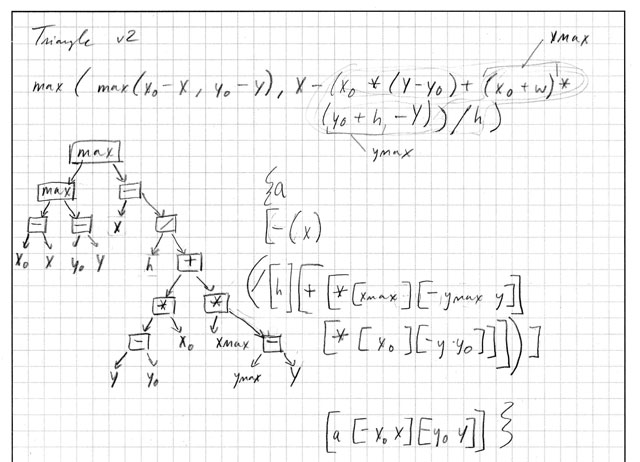 Triangle v2
xmax
max ( max(x₀-x , y₀-y), x - (x₀ * (y-y₀) + (x₀+w) *
(y₀ + h - y)) / h )
ymax
max
max -
- - x /
x₀ x y₀ y h +
* *
- x₀ xmax -
y y₀ ymax y
{a
[-(x)
(/[h][+[*[xmax][-ymax y]]
[*[x₀][-y y₀]]]])]
[a [-x₀ x][-y₀ y]] }